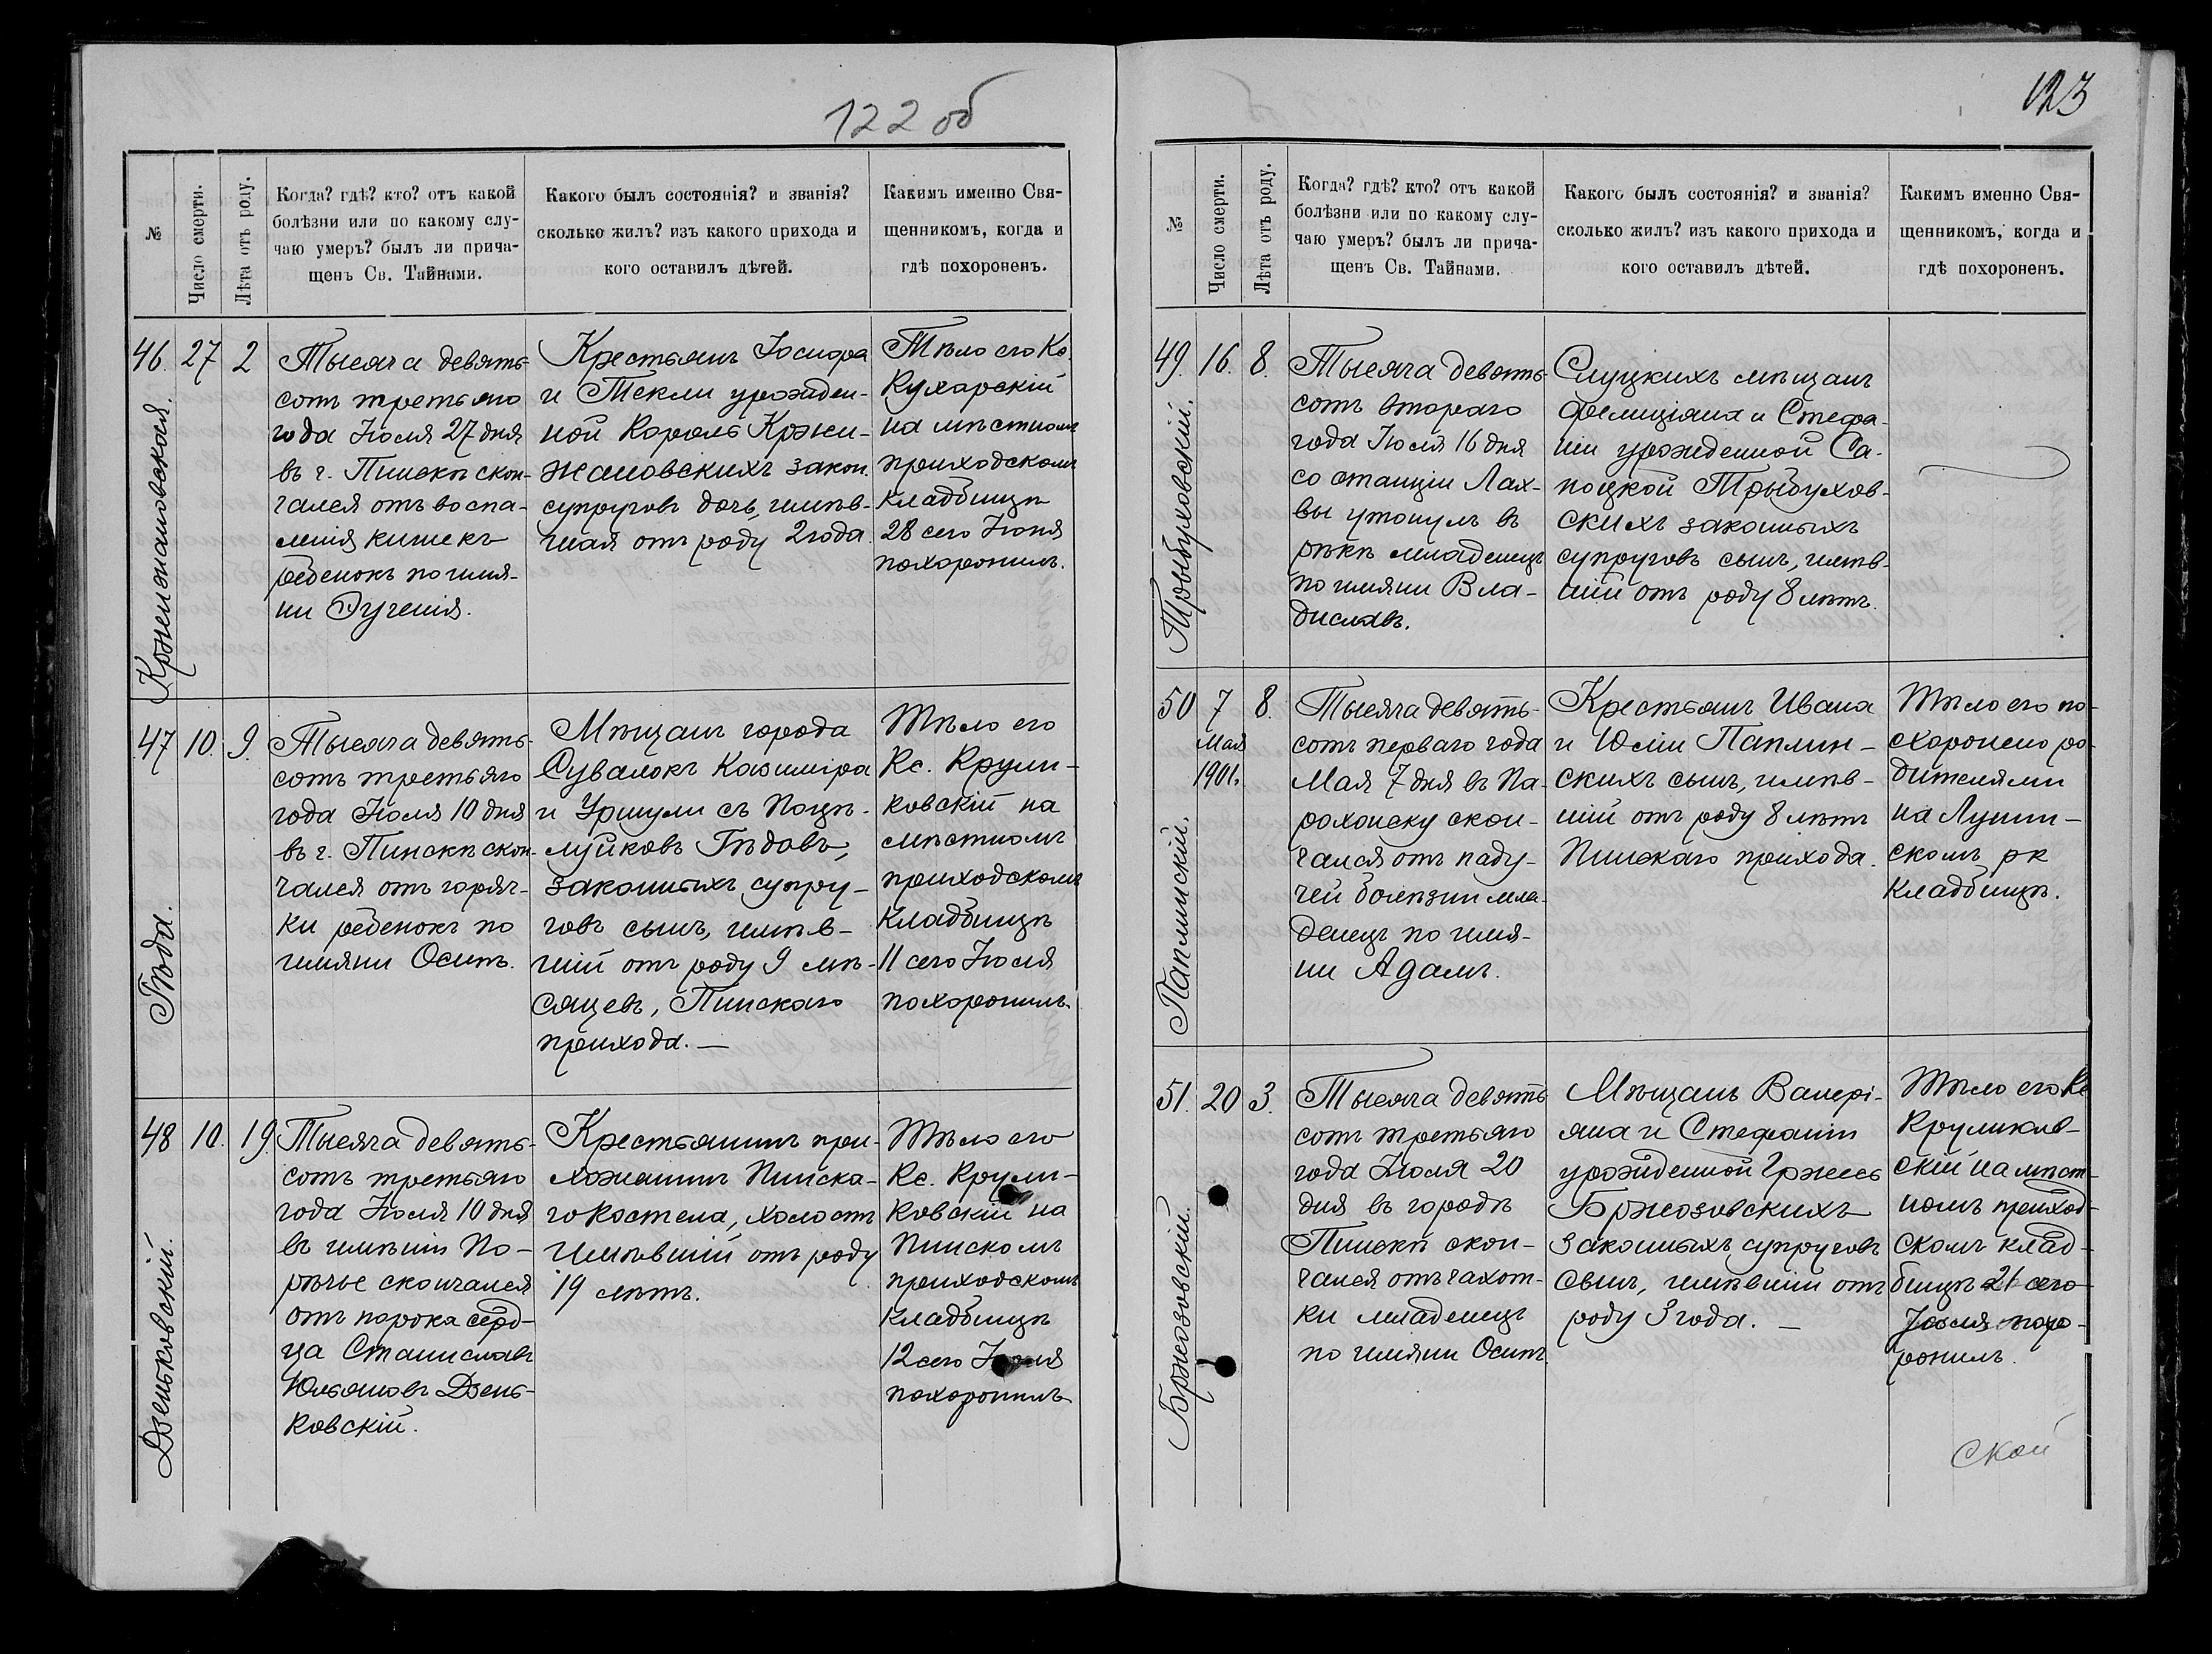 122 об
№
Число смерти.
Лѣта отъ роду.
Когда? гдѣ? кто? отъ какой
болѣзни или по какому слу-
чаю умеръ? былъ ли прича-
щенъ Св. Тайнами.
Какого былъ состоянія? и званія?
сколько жилъ? изъ какого прихода и
кого оставилъ дѣтей.
Какимъ именно Свя-
щенникомъ, когда и
гдѣ похороненъ.
46.
Крженжановская.
27
2
Тысяча девять-
сотъ третьяго
года Іюля 27 дня
въ г. Пинскѣ скон-
чался отъ воспа-
ленія кишекъ
ребенокъ по имя-
ни Эугенія.
Крестьянъ Іосифа
и Текли урожден-
ной Король Кржи-
жановскихъ закон.
супруговъ дочь, имѣв-
шая отъ роду 2 года.
Тѣло его Кс.
Кухарскій
на мѣстномъ
приходскомъ
кладбищѣ
28 сего Іюня
похоронилъ.
47
Гѣда.
10.
9.
Тысяча девять-
сотъ третьяго
года Іюля 10 дня
въ г. Пинскѣ скон-
чался отъ горяч-
ки ребенокъ по
имяни Осипъ.
Мѣщанъ города
Сувалокъ Казиміра
и Уршули съ Поцѣ-
луйковъ Гѣдовъ,
законныхъ супру-
говъ сынъ, имѣв-
шій отъ роду 9 мѣ-
сяцевъ, Пинскаго
прихода. —
Тѣло его
Кс. Крули-
ковскій на
мѣстномъ
приходскомъ
кладбищѣ
11 сего Іюля
похоронилъ.
48
Дзеньковскій.
10.
19.
Тысяча девять-
сотъ третьяго
года Іюля 10 дня
въ имѣніи По-
рѣчье скончался
отъ порока серд-
ца Станиславъ
Юльяновъ Дзень-
ковскій.
Крестьянинъ при-
хожанинъ Пинска-
го костела, холостъ
имѣвшій отъ роду
19 лѣтъ.
Тѣло его
Кс. Крули-
ковскій на
Пинскомъ
приходскомъ
кладбищѣ
12 сего Іюля
похоронилъ
123
№
Число смерти.
Лѣта отъ роду.
Когда? гдѣ? кто? отъ какой
болѣзни или по какому слу-
чаю умеръ? былъ ли прича-
щенъ Св. Тайнами.
Какого былъ состоянія? и званія?
сколько жилъ? изъ какого прихода и
кого оставилъ дѣтей.
Какимъ именно Свя-
щенникомъ, когда и
гдѣ похороненъ.
49.
Трыбуховскій.
16.
8.
Тысяча девять-
сотъ второго
года Іюля 16 дня
со станціи Лах-
вы утонулъ въ
рѣкѣ младенецъ
по имяни Вла-
диславъ.
Слуцкихъ мѣщанъ
Фелиціяна и Стефа-
ніи урожденной Са-
поцкой Трыбухов-
скихъ законныхъ
супруговъ сынъ, имѣв-
шій отъ роду 8 лѣтъ.
50
Паплинскій.
7
Мая
1901.
8.
Тысяча девять-
сотъ перваго года
Мая 7 дня въ Па-
рохонску скон-
чался отъ паду-
чей болѣзни мла-
денецъ по имя-
ни Адамъ.
Крестьянъ Ивана
и Юліи Паплин-
скихъ сынъ, имѣв-
шій отъ роду 8 лѣтъ
Пинскаго прихода.
Тѣло его по-
схоронено ро-
дителями
на Лунин-
скомъ рк
кладбищѣ.
51.
Бржозовскій.
20
3.
Тысяча девять
сотъ третьяго
года Іюля 20
дня въ городѣ
Пинскѣ скон-
чался отъ чахот-
ки младенецъ
по имяни Осипъ.
Мѣщанъ Валері-
яна и Стефаніи
урожденной Гржесь
Бржозовскихъ
законныхъ супруговъ
сынъ, имѣвшій отъ
роду 3 года. —
Тѣло его Кс
Круликов-
скій на мѣст-
номъ приход-
скомъ клад-
бищѣ 21 сего
Іюля похо-
ронилъ.
ской